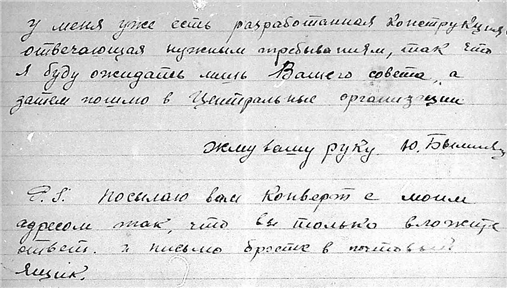 у меня уже есть разработанная конструкция
отвечающая нужным требываниям, так что
я буду ожидать лишь Вашего совета, а
затем пошлю в Центральные организации
Жму вашу руку Ю.
P.S. Посылаю вам конверт с моим
адресом так, что вы только вложите
ответ. и письмо бросте в почтовый
ящик.